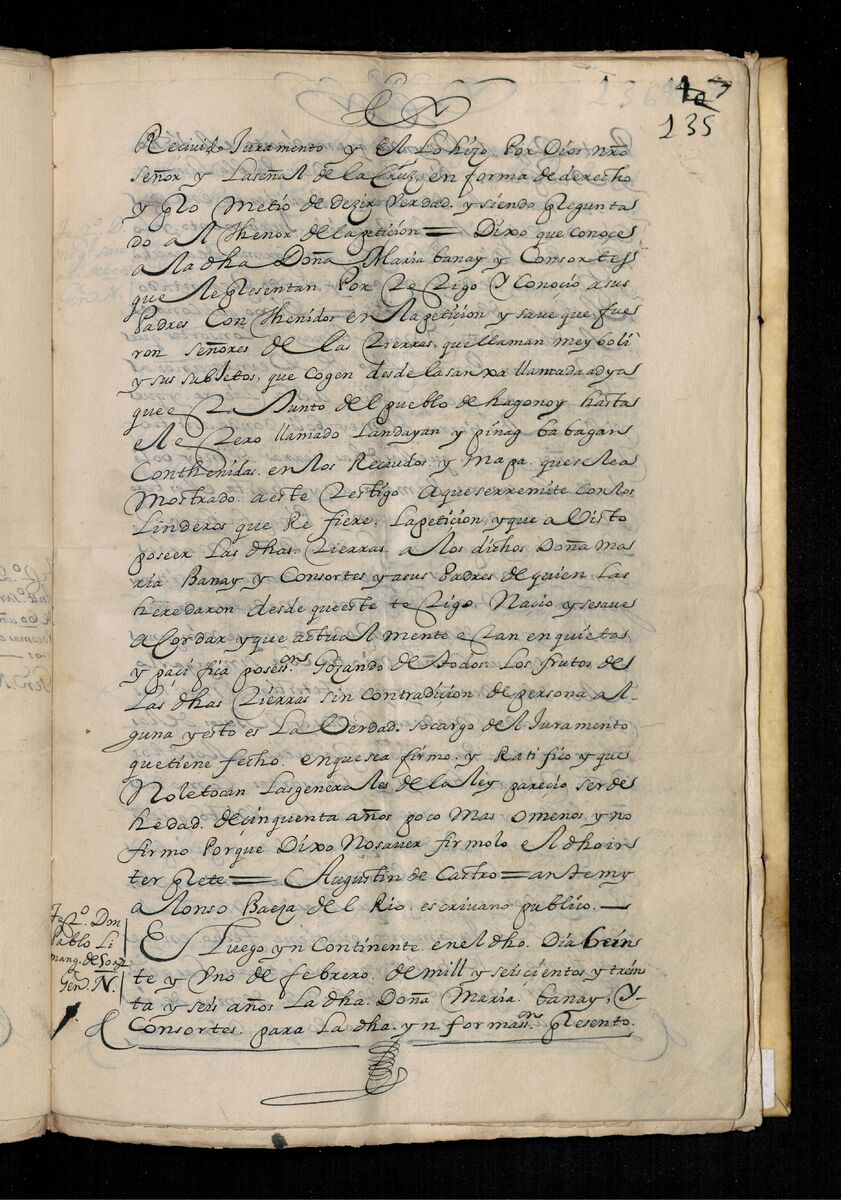 135
Recivido Juramento y el lo hizo Por Dios nr̃o
Señor y Laseñal de la Cruz en forma de derecho
y plo metio de dezir Verdad. y siendo plegunta
do al thenor de la peticion = Dixo que conoce
a la dha Doña Maria banay y Consortes
que le plesentan Por testigo Y Conoció a sus
Padres Conthenidos en la peticion y save que fue
ron señores de las tierras, que llaman meyboli
y sus subjetos, que cogen desde la sanxa llamada adya
que esta Junto del pueblo de hagonoy hasta
el estero llamado Landayan y pinag babagan
Conthenidas. en los Recaudos. y Mapa. que se lea
Mostrado. a este testigo. A que serremite con los
Linderos que Re fiere. La peticion, y que a Visto
poseer Las dhas. tierras. a los dichos Doña Ma
ria Banay y Consortes y a sus Padres de quien las
heredaron desde que este testigo. Nacio y se save
a Cordar y que actual mente estan en quieta
y paci fica posesi.on Gozando de todos. Los frutos de
Las dhas tierras sin contradicion. de persona al-
guna y esto es La Verdad. so cargo del Juramento
que tiene fecho. en que sea firmo. y Rati fico y que
No le tocan Las generales de la ley parecio ser de
hedad. de cinquenta años poco Mas o menos, y no
firmo Porque Dixo No saver firmolo el dho in
ter plete = Augustin de Castro = ante my
alonso Baeza del Rio. es crivano publico. —
Tes.tº. Don
Pablo Li
mang. de 50 aº
Gen. N.
E Luego yn Continente. en el dho. Dia bein
te y Uno de febrero. de mill y seiscientos y trein
ta y seis años La dha. Doña Maria. banay, Y
Consortes. para La dha. yn formasi.on plesento.